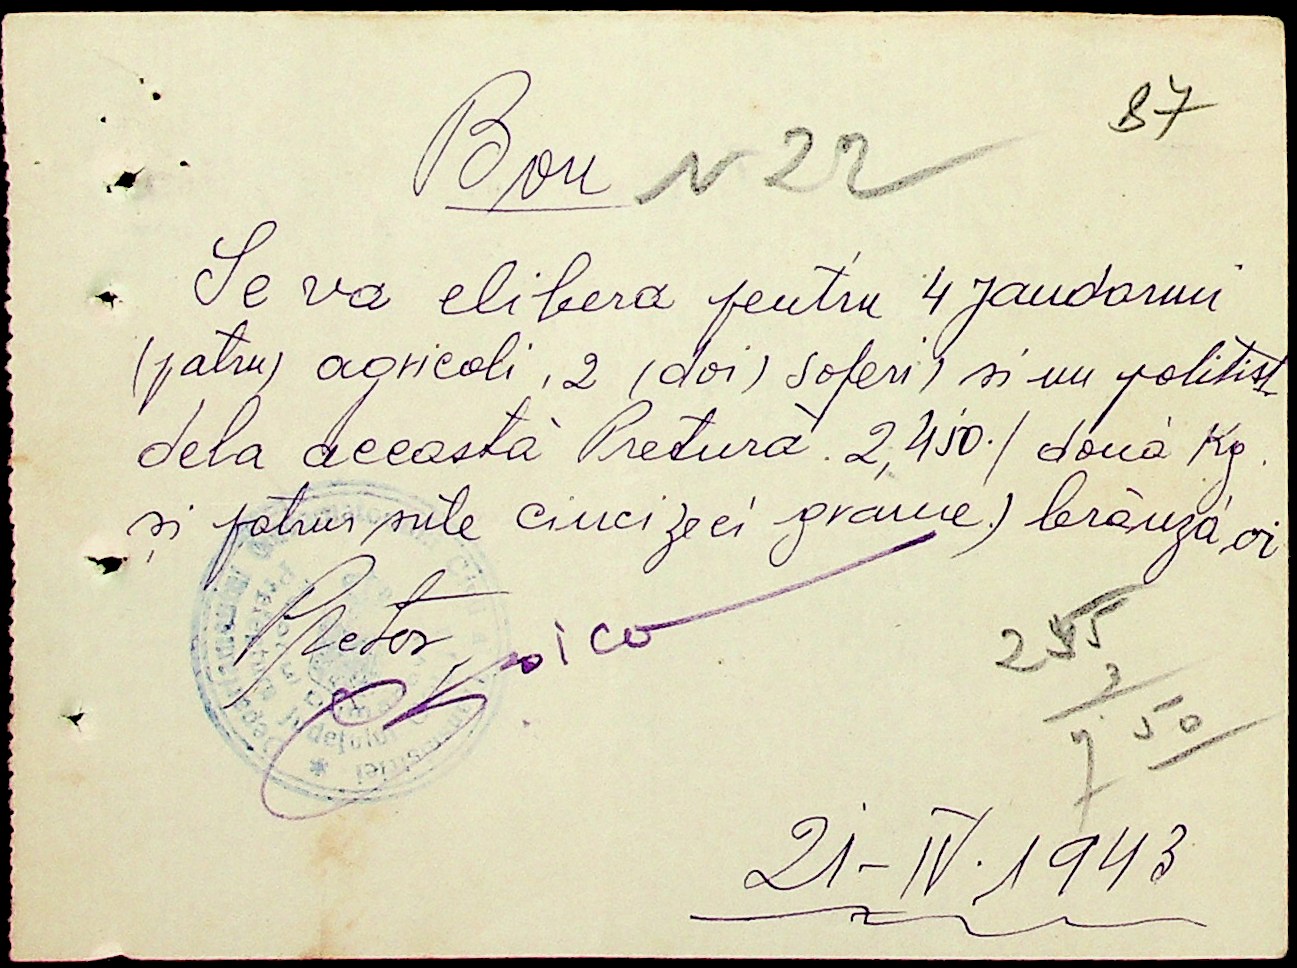 87
Bon N 22
Se va elibera pentru 4 jandarmi
(patru) agricoli, 2 (doi) soferi) si un politist
dela această Pretură 2,450./ două Kg.
și patru sute cincizeci grame) brânză oi
Pretor,
255
3
7 50
21-IV.1943